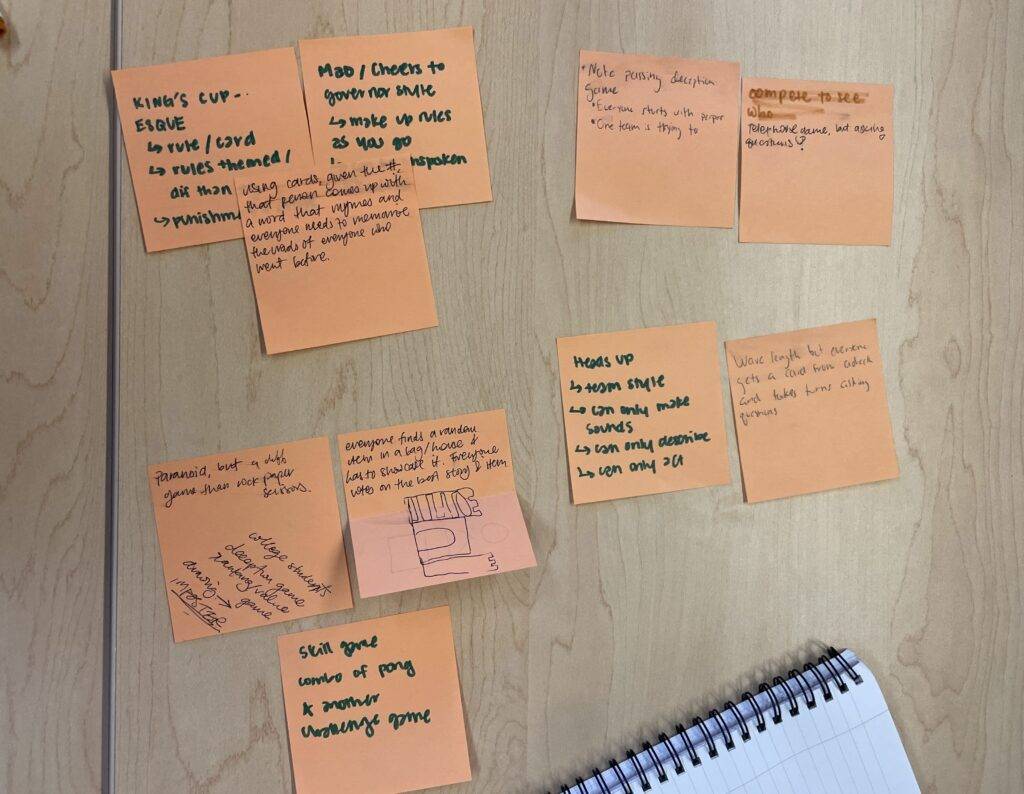 KING'S CUP-
ESQUE
↳ rule / card
↳ rules themed /
dif than
↳ punishm
Mao / Cheers to
governor style
↳ make up rules
as you go
nspoken
using cards, given the #,
that person comes up with
a word that rhymes and
everyone needs to memorize
the words of everyone who
went before.
• Note passing deception
game
• Everyone starts with paper
• One team is trying to
compete to see
who
telephone game, but asking
questions?
Heads up
↳ team style
↳ can only make
sounds
↳ can only describe
↳ can only act
Wave length but everyone
gets a card from a deck
and takes turns asking
questions
Paranoid, but a diff
game than rock paper
scissors.
college students
deception game
ranking/value
drawing → game
IMPOSTER
everyone finds a random
item in a bag/house &
has to showcase it. Everyone
votes on the best story & item
Skill game
combo of pong
& another
challenge game